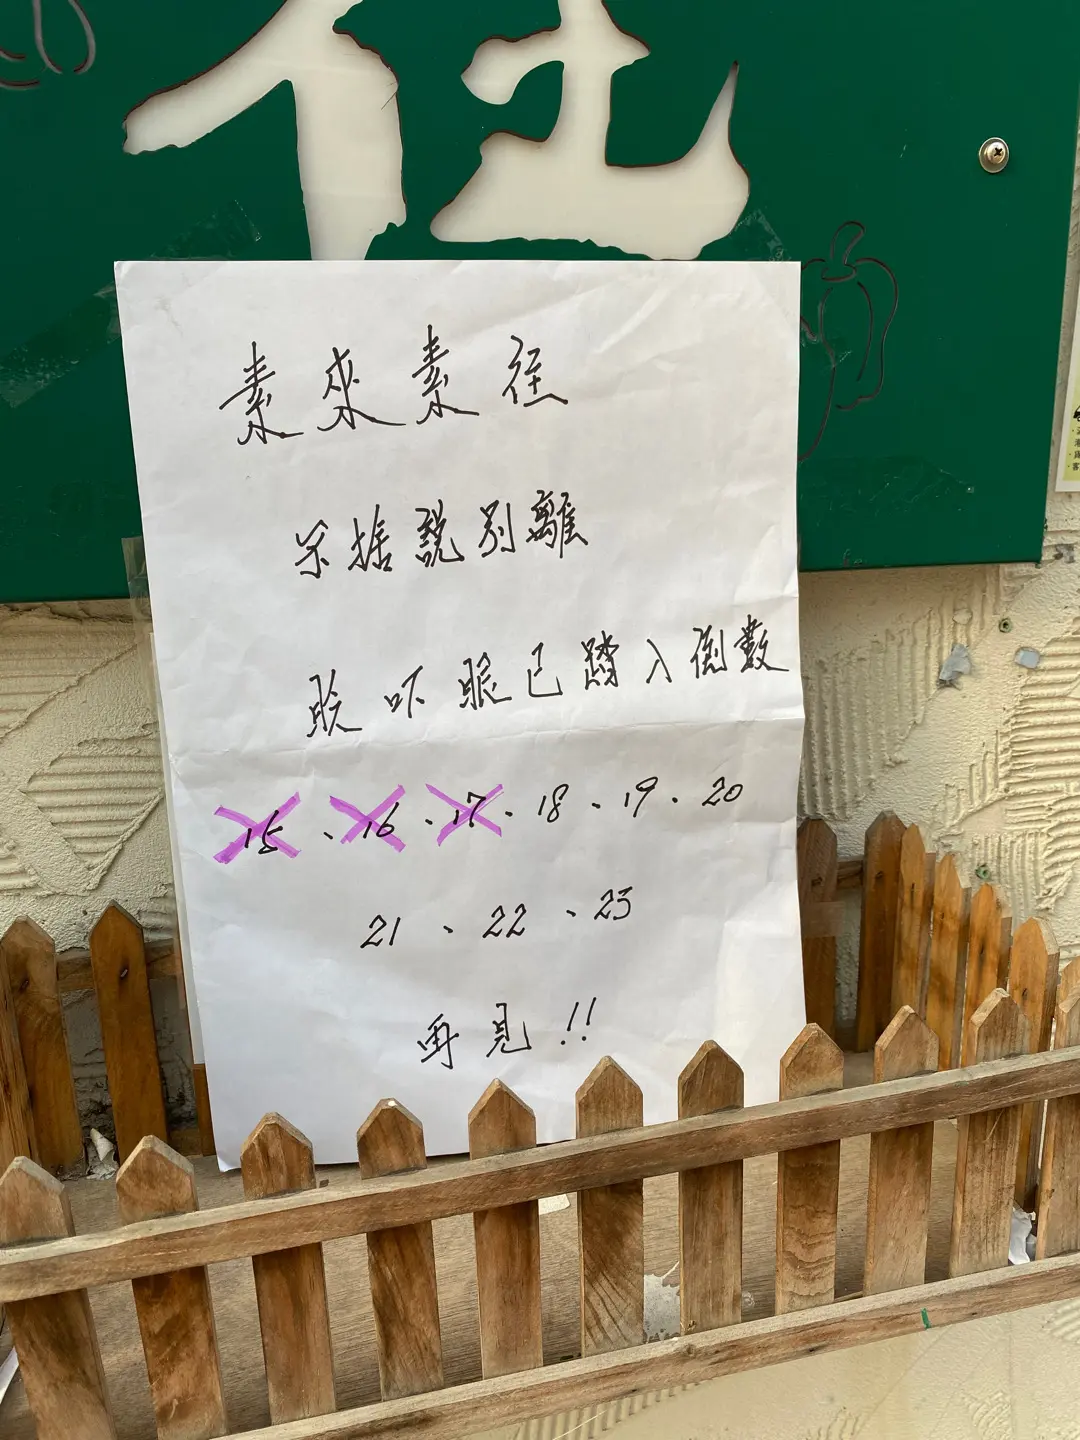 素來素往
不捨說別離
眨吓眼已踏入倒數
15、16、17、18、19、20
21、22、23
再見!!